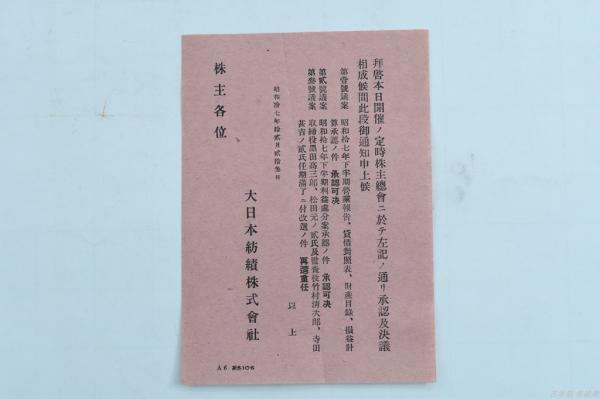 拜啓本日開催ノ定時株主總會ニ於テ左記ノ通リ承認及決議
相成候間此段御通知申上候
第壹號議案 昭和拾七年下半期營業報告、貸借對照表、財產目錄、損益計
算承認ノ件 承認可決
第貳號議案 昭和拾七年下半期利益處分案承認ノ件 承認可決
第叁號議案 取締役黑田高三郎、松田元ノ貳氏及監査役竹村淸次郎、寺田
甚吉ノ貳氏任期滿了ニ付改選ノ件 再選重任
以上
昭和拾七年拾貳月貳拾叁日
大日本紡績株式會社
株主各位
A6